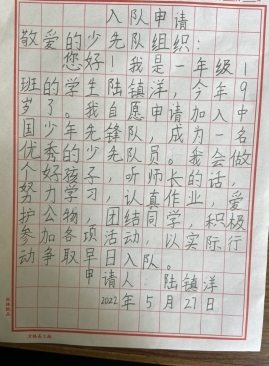 入队申请
敬爱的少先队组织：
您好！我是一年级1
班的学生陆镇洋，今年9
岁了。我自愿申请加入中
国少年先锋队，成为一名
优秀的少先队员。我会做
个好孩子，听师长的话，
努力学习，认真作业，爱
护公物，团结同学，积极
参加各项活动，以实际行
动争取早日入队。
申请人 陆镇洋
2022年5月27日